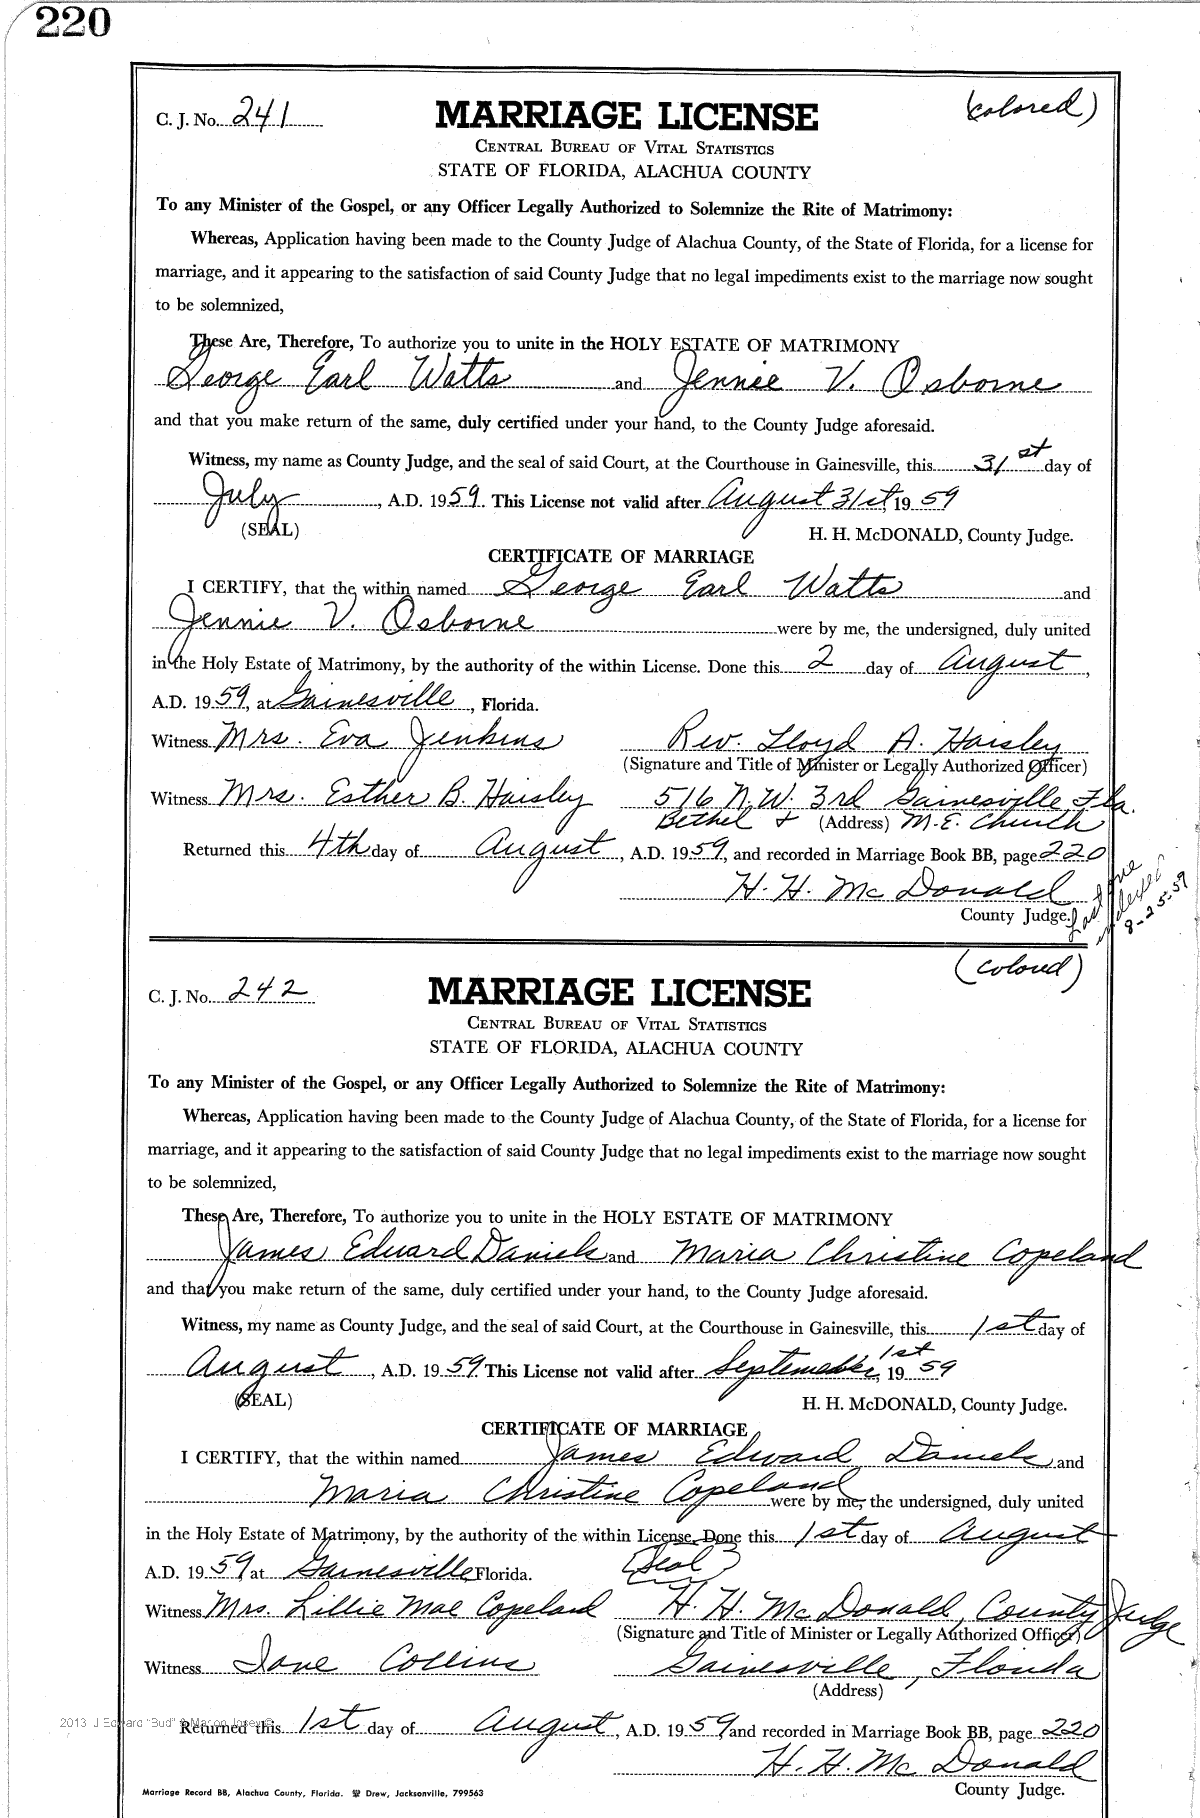 220
C. J. No. 241 MARRIAGE LICENSE (colored)
CENTRAL BUREAU OF VITAL STATISTICS
STATE OF FLORIDA, ALACHUA COUNTY
To any Minister of the Gospel, or any Officer Legally Authorized to Solemnize the Rite of Matrimony:
Whereas, Application having been made to the County Judge of Alachua County, of the State of Florida, for a license for
marriage, and it appearing to the satisfaction of said County Judge that no legal impediments exist to the marriage now sought
to be solemnized,
These Are, Therefore, To authorize you to unite in the HOLY ESTATE OF MATRIMONY
George Earl Watts and Jennie V. Osborne
and that you make return of the same, duly certified under your hand, to the County Judge aforesaid.
Witness, my name as County Judge, and the seal of said Court, at the Courthouse in Gainesville, this 31st day of
July, A.D. 1959. This License not valid after August 31st, 1959
(SEAL) H. H. McDONALD, County Judge.
CERTIFICATE OF MARRIAGE
I CERTIFY, that the within named George Earl Watts and
Jennie V. Osborne were by me, the undersigned, duly united
in the Holy Estate of Matrimony, by the authority of the within License. Done this 2 day of August,
A.D. 1959, at Gainesville, Florida.
Witness Mrs. Eva Jenkins Rev. Lloyd A. Haisley
(Signature and Title of Minister or Legally Authorized Officer)
Witness Mrs. Esther B. Haisley 516 N.W. 3rd Gainesville, Fla.
Bethel + (Address) M.E. Church
Returned this 4th day of August, A.D. 1959, and recorded in Marriage Book BB, page 220
H. H. McDonald
County Judge.
Last one
indexed
8-25-59
C. J. No. 242 MARRIAGE LICENSE (colored)
CENTRAL BUREAU OF VITAL STATISTICS
STATE OF FLORIDA, ALACHUA COUNTY
To any Minister of the Gospel, or any Officer Legally Authorized to Solemnize the Rite of Matrimony:
Whereas, Application having been made to the County Judge of Alachua County, of the State of Florida, for a license for
marriage, and it appearing to the satisfaction of said County Judge that no legal impediments exist to the marriage now sought
to be solemnized,
These Are, Therefore, To authorize you to unite in the HOLY ESTATE OF MATRIMONY
James Edward Daniels and Maria Christine Copeland
and that you make return of the same, duly certified under your hand, to the County Judge aforesaid.
Witness, my name as County Judge, and the seal of said Court, at the Courthouse in Gainesville, this 1st day of
August, A.D. 1959. This License not valid after September 1st, 1959
(SEAL) H. H. McDONALD, County Judge.
CERTIFICATE OF MARRIAGE
I CERTIFY, that the within named James Edward Daniels and
Maria Christine Copeland were by me, the undersigned, duly united
in the Holy Estate of Matrimony, by the authority of the within License. Done this 1st day of August
A.D. 1959, at Gainesville, Florida. (Seal)
Witness Mrs. Lillie Mae Copeland H. H. McDonald, County Judge
(Signature and Title of Minister or Legally Authorized Officer)
Witness Jane Collins Gainesville, Florida
(Address)
Returned this 1st day of August, A.D. 1959, and recorded in Marriage Book BB, page 220
H. H. McDonald
County Judge.
Marriage Record BB, Alachua County, Florida. Drew, Jacksonville, 799563
2013 J Edward "Bud" &